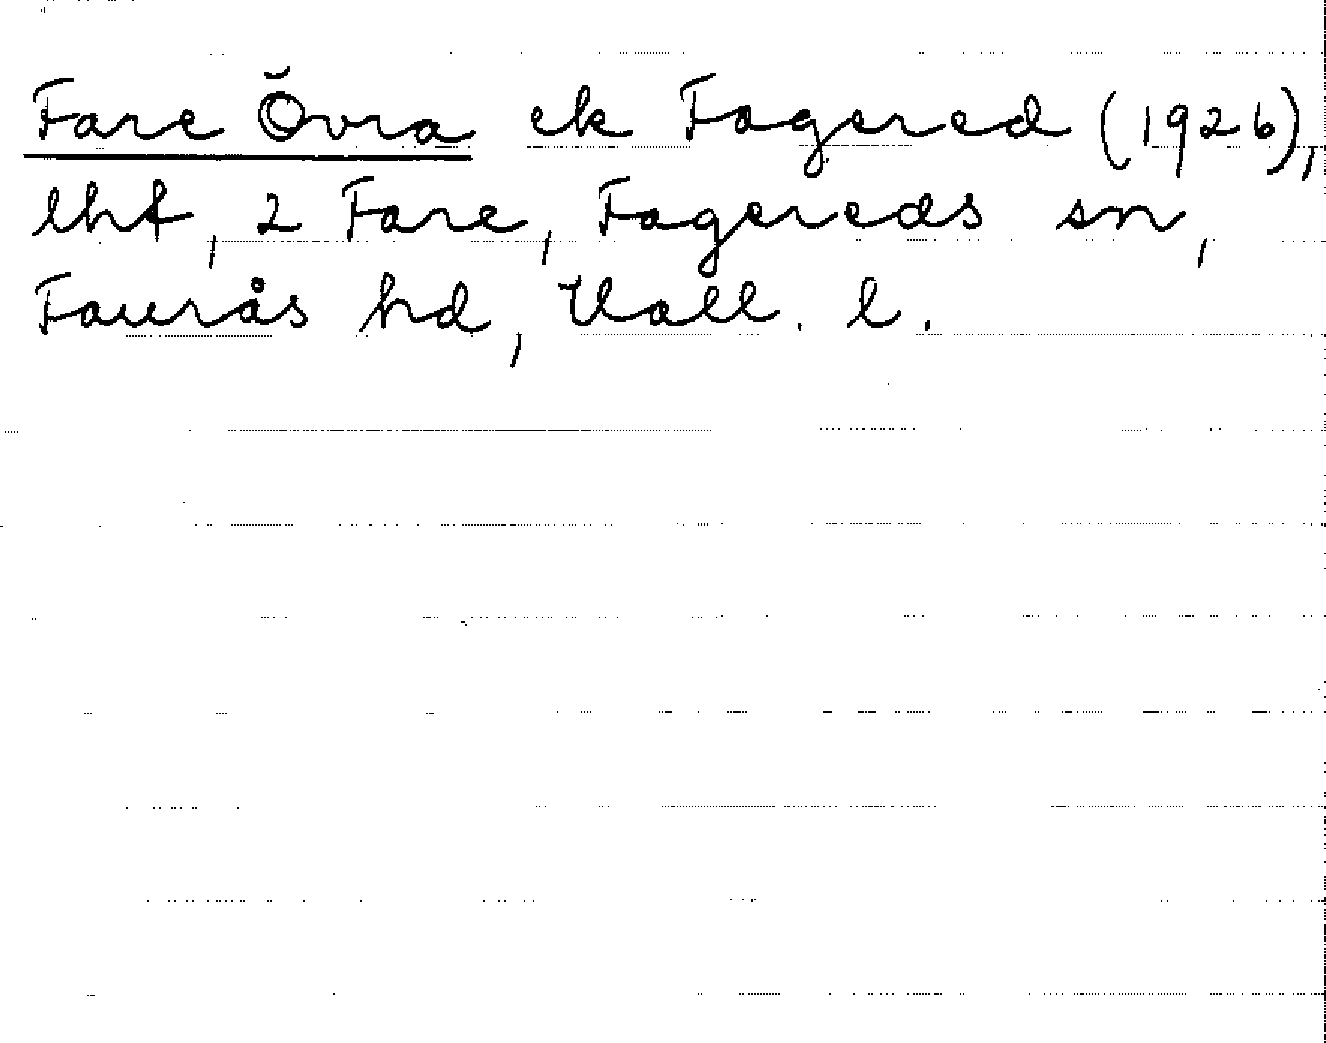 Fare Övra ek Fagered (1926),
lht, 2 Fare, Fagereds sn,
Faurås hd, Hall. l.